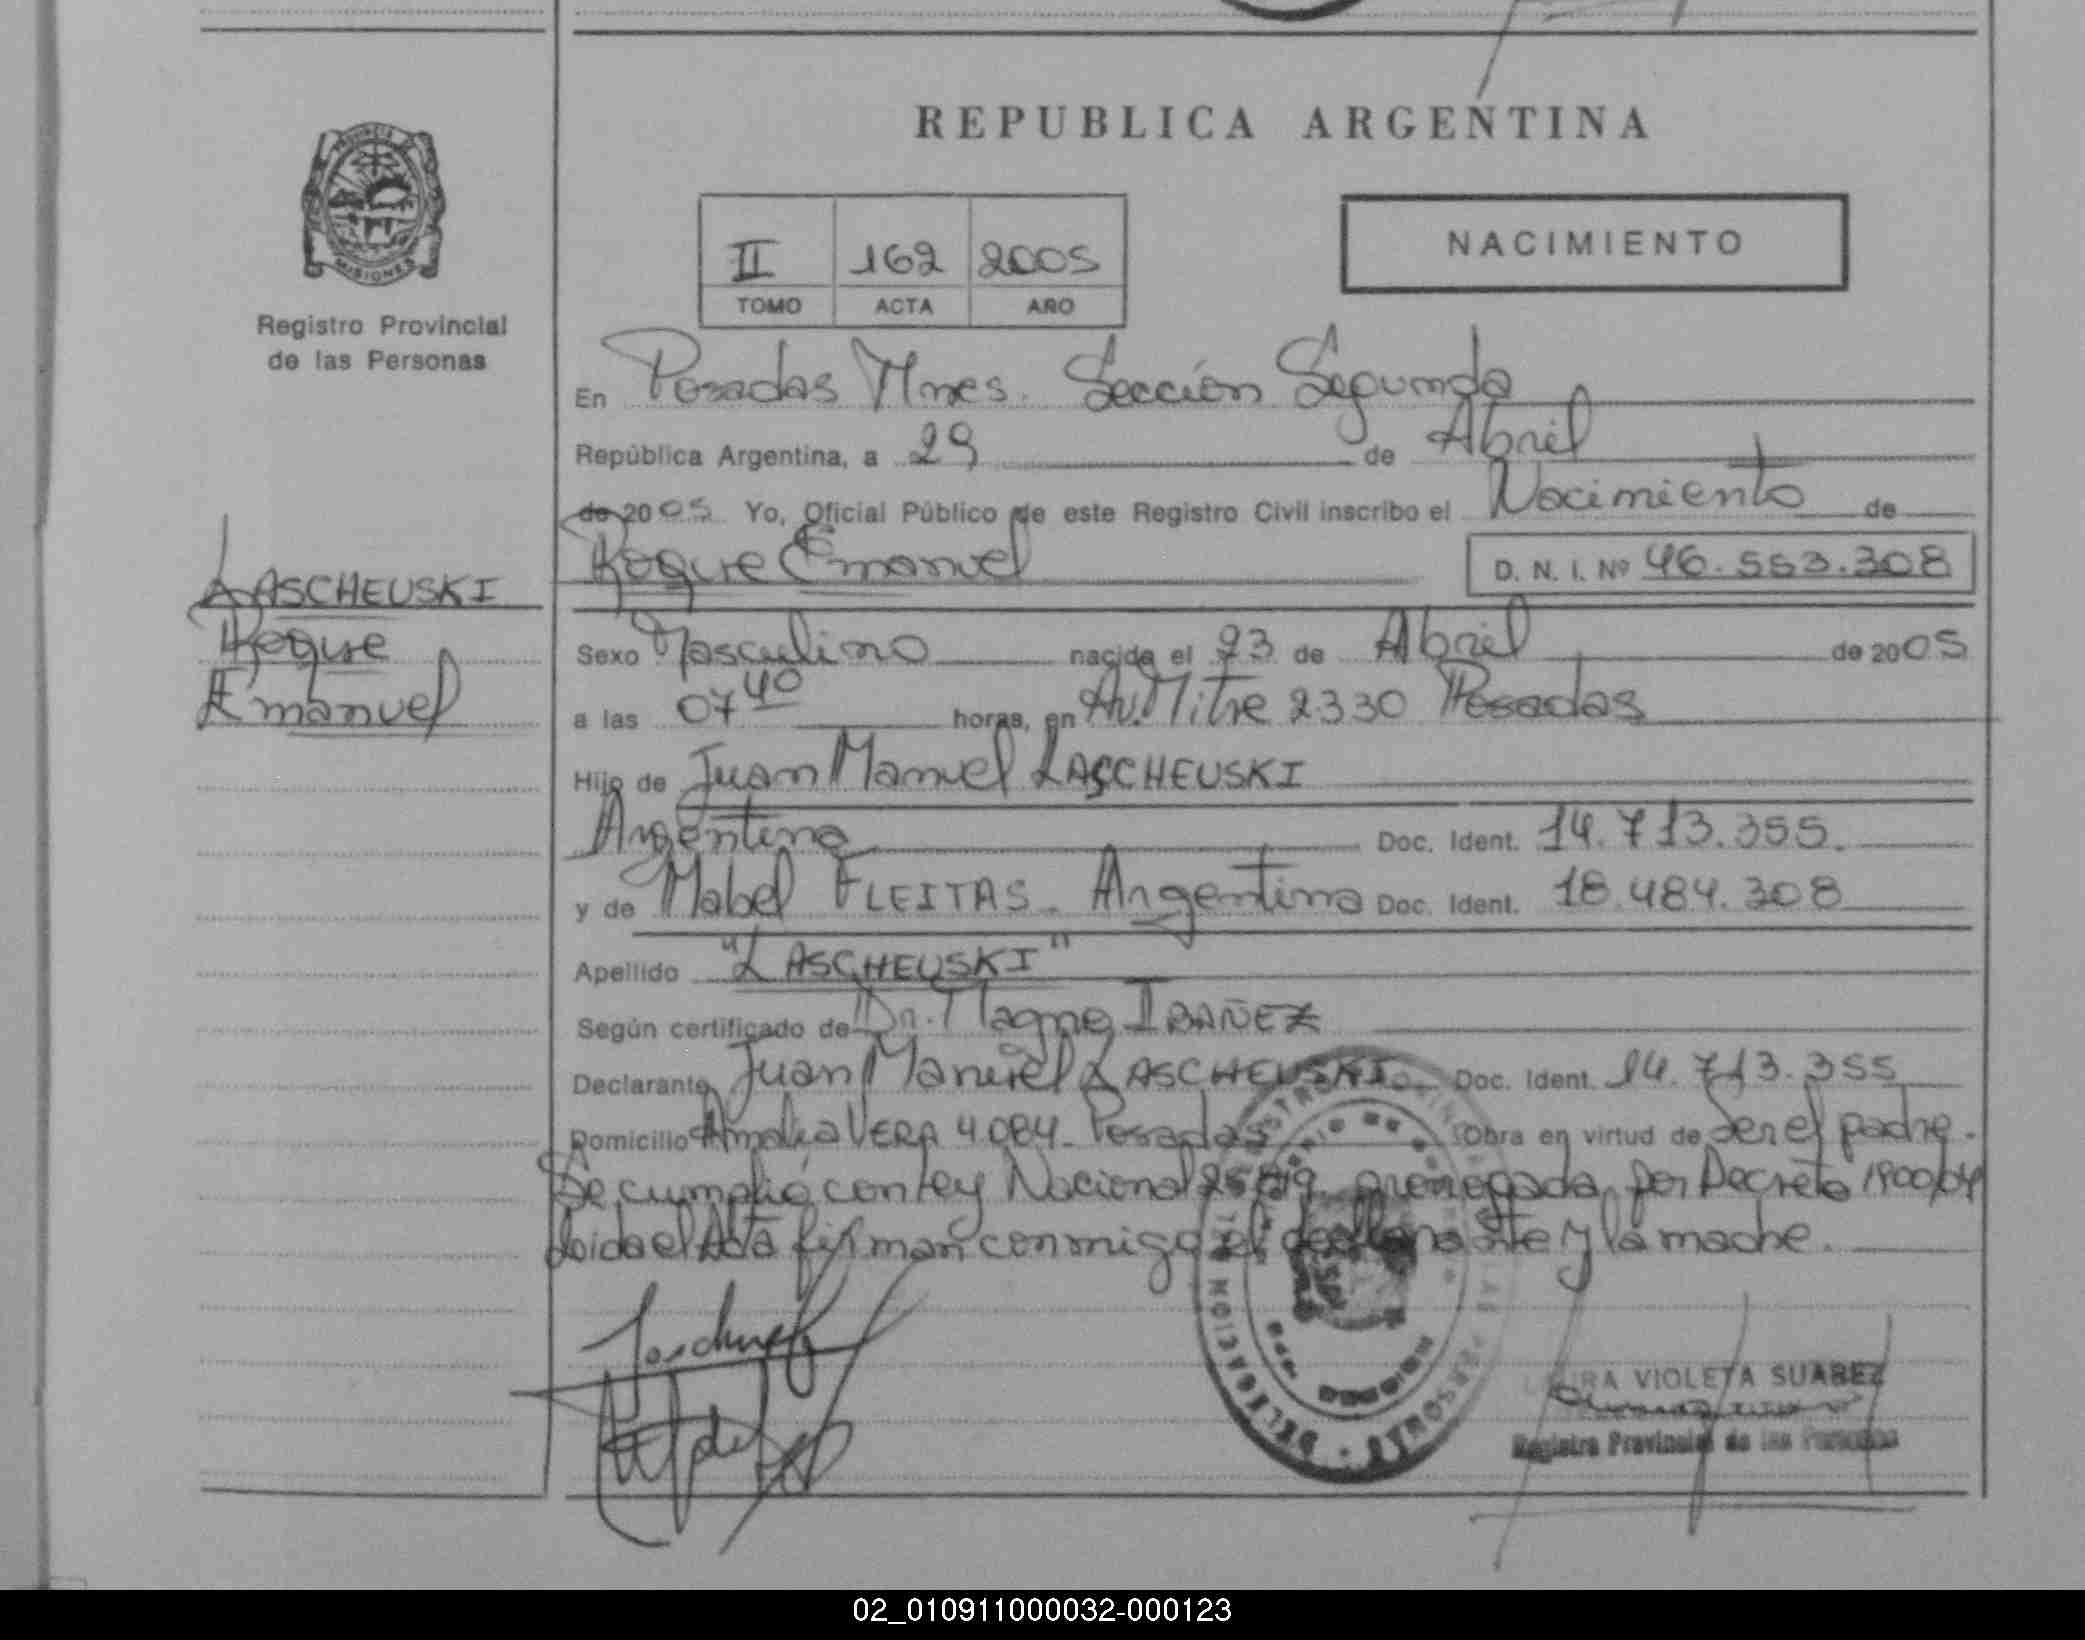 REPUBLICA ARGENTINA
PROVINCIA DE
MISIONES
Registro Provincial
de las Personas
II 162 2005
TOMO ACTA AÑO
NACIMIENTO
En Posadas Mnes. Sección Segunda
República Argentina, a 29 de Abril
de 2005 Yo, Oficial Público de este Registro Civil inscribo el Nacimiento de
Roque Emanuel D. N. I. Nº 46.553.308
LASCHEUSKI
Roque
Emanuel
Sexo Masculino nacido el 23 de Abril de 2005
a las 07 40 horas, en Av. Mitre 2330 Posadas
Hijo de Juan Manuel LASCHEUSKI
Argentino Doc. Ident. 14.713.355.
y de Mabel FLEITAS. Argentina Doc. Ident. 18.484.308
Apellido "LASCHEUSKI"
Según certificado de Dr. Magno IBAÑEZ
Declarante Juan Manuel LASCHEUSKI Doc. Ident. 14.713.355
Domicilio Amalia VERA 4084 - Posadas Obra en virtud de Ser el padre.
Se cumplió con Ley Nacional prorrogada por Decreto 1900/04
Leida el Acta firman conmigo el declarante y la madre.
VIOLETA SUAREZ
Registro Provincial de las Personas
02_010911000032-000123